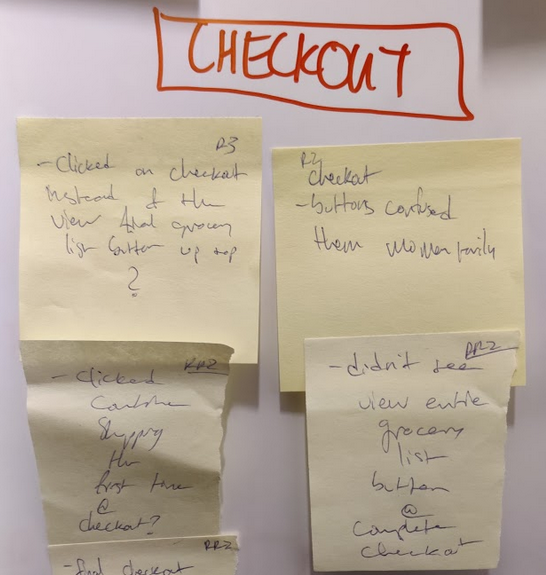 CHECKOUT
R3
- Clicked on checkout
instead of the
view final grocery
list button up top
?
R3
checkout
- buttons confused
them momentarily
RR2
- Clicked
Continue
Shopping
the
first time
@
checkout?
RR2
- didn't see
view entire
grocery
list
button
@
complete
checkout
RR2
- final checkout